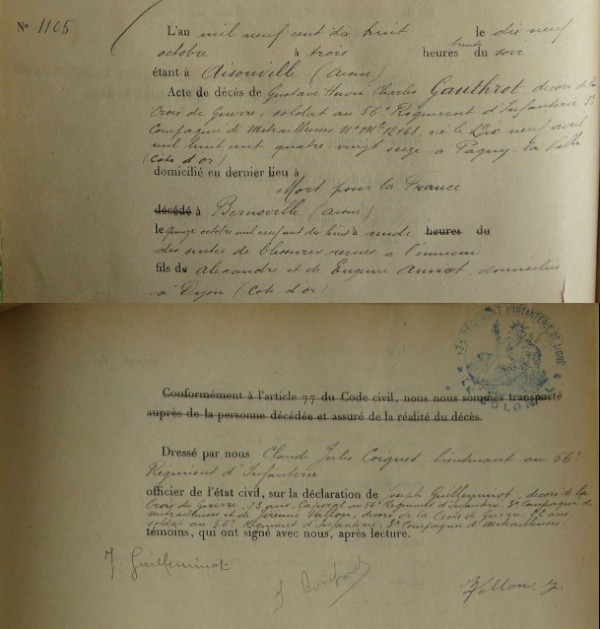 N° 1105
L'an mil neuf cent dix huit le dix neuf
octobre à trois heures trente du soir
étant à Aisonville (aisne)
Acte de décès de Gustave Henri Charles Gauthrot, décoré de la
Croix de Guerre, soldat au 56e Régiment d'Infanterie 3e
Compagnie de Mitrailleuses N° Mle 12168, né le Dix neuf avril
mil huit cent quatre vingt seize à Pagny la Ville
(Cote d'or)
domicilié en dernier lieu à
Mort pour la France
décédé à Bernoville (aisne)
le quinze octobre mil neuf cent dix huit à heures du
des suites de blessures reçues à l'ennemi
fils de Alexandre et de Eugénie Annot, domiciliés
à Dijon (Cote d'or)
REGIMENT D'INFANTERIE DE LIGNE
LE COLONEL
Conformément à l'article 77 du Code civil, nous nous sommes transporté
auprès de la personne décédée et assuré de la réalité du décès.
Dressé par nous Claude Jules Coignet, Lieutenant au 56e
Régiment d'Infanterie
officier de l'état civil, sur la déclaration de Joseph Guilleminot, décoré de la
Croix de Guerre, 33 ans, Caporal au 56e Régiment d'Infanterie, 3e Compagnie de
mitrailleuses et de Vallon, décoré de la Croix de Guerre, 22 ans
soldat au 56e Régiment d'Infanterie, 3e Compagnie de Mitrailleuses
témoins, qui ont signé avec nous, après lecture.
J. Guilleminot
Vallon J.